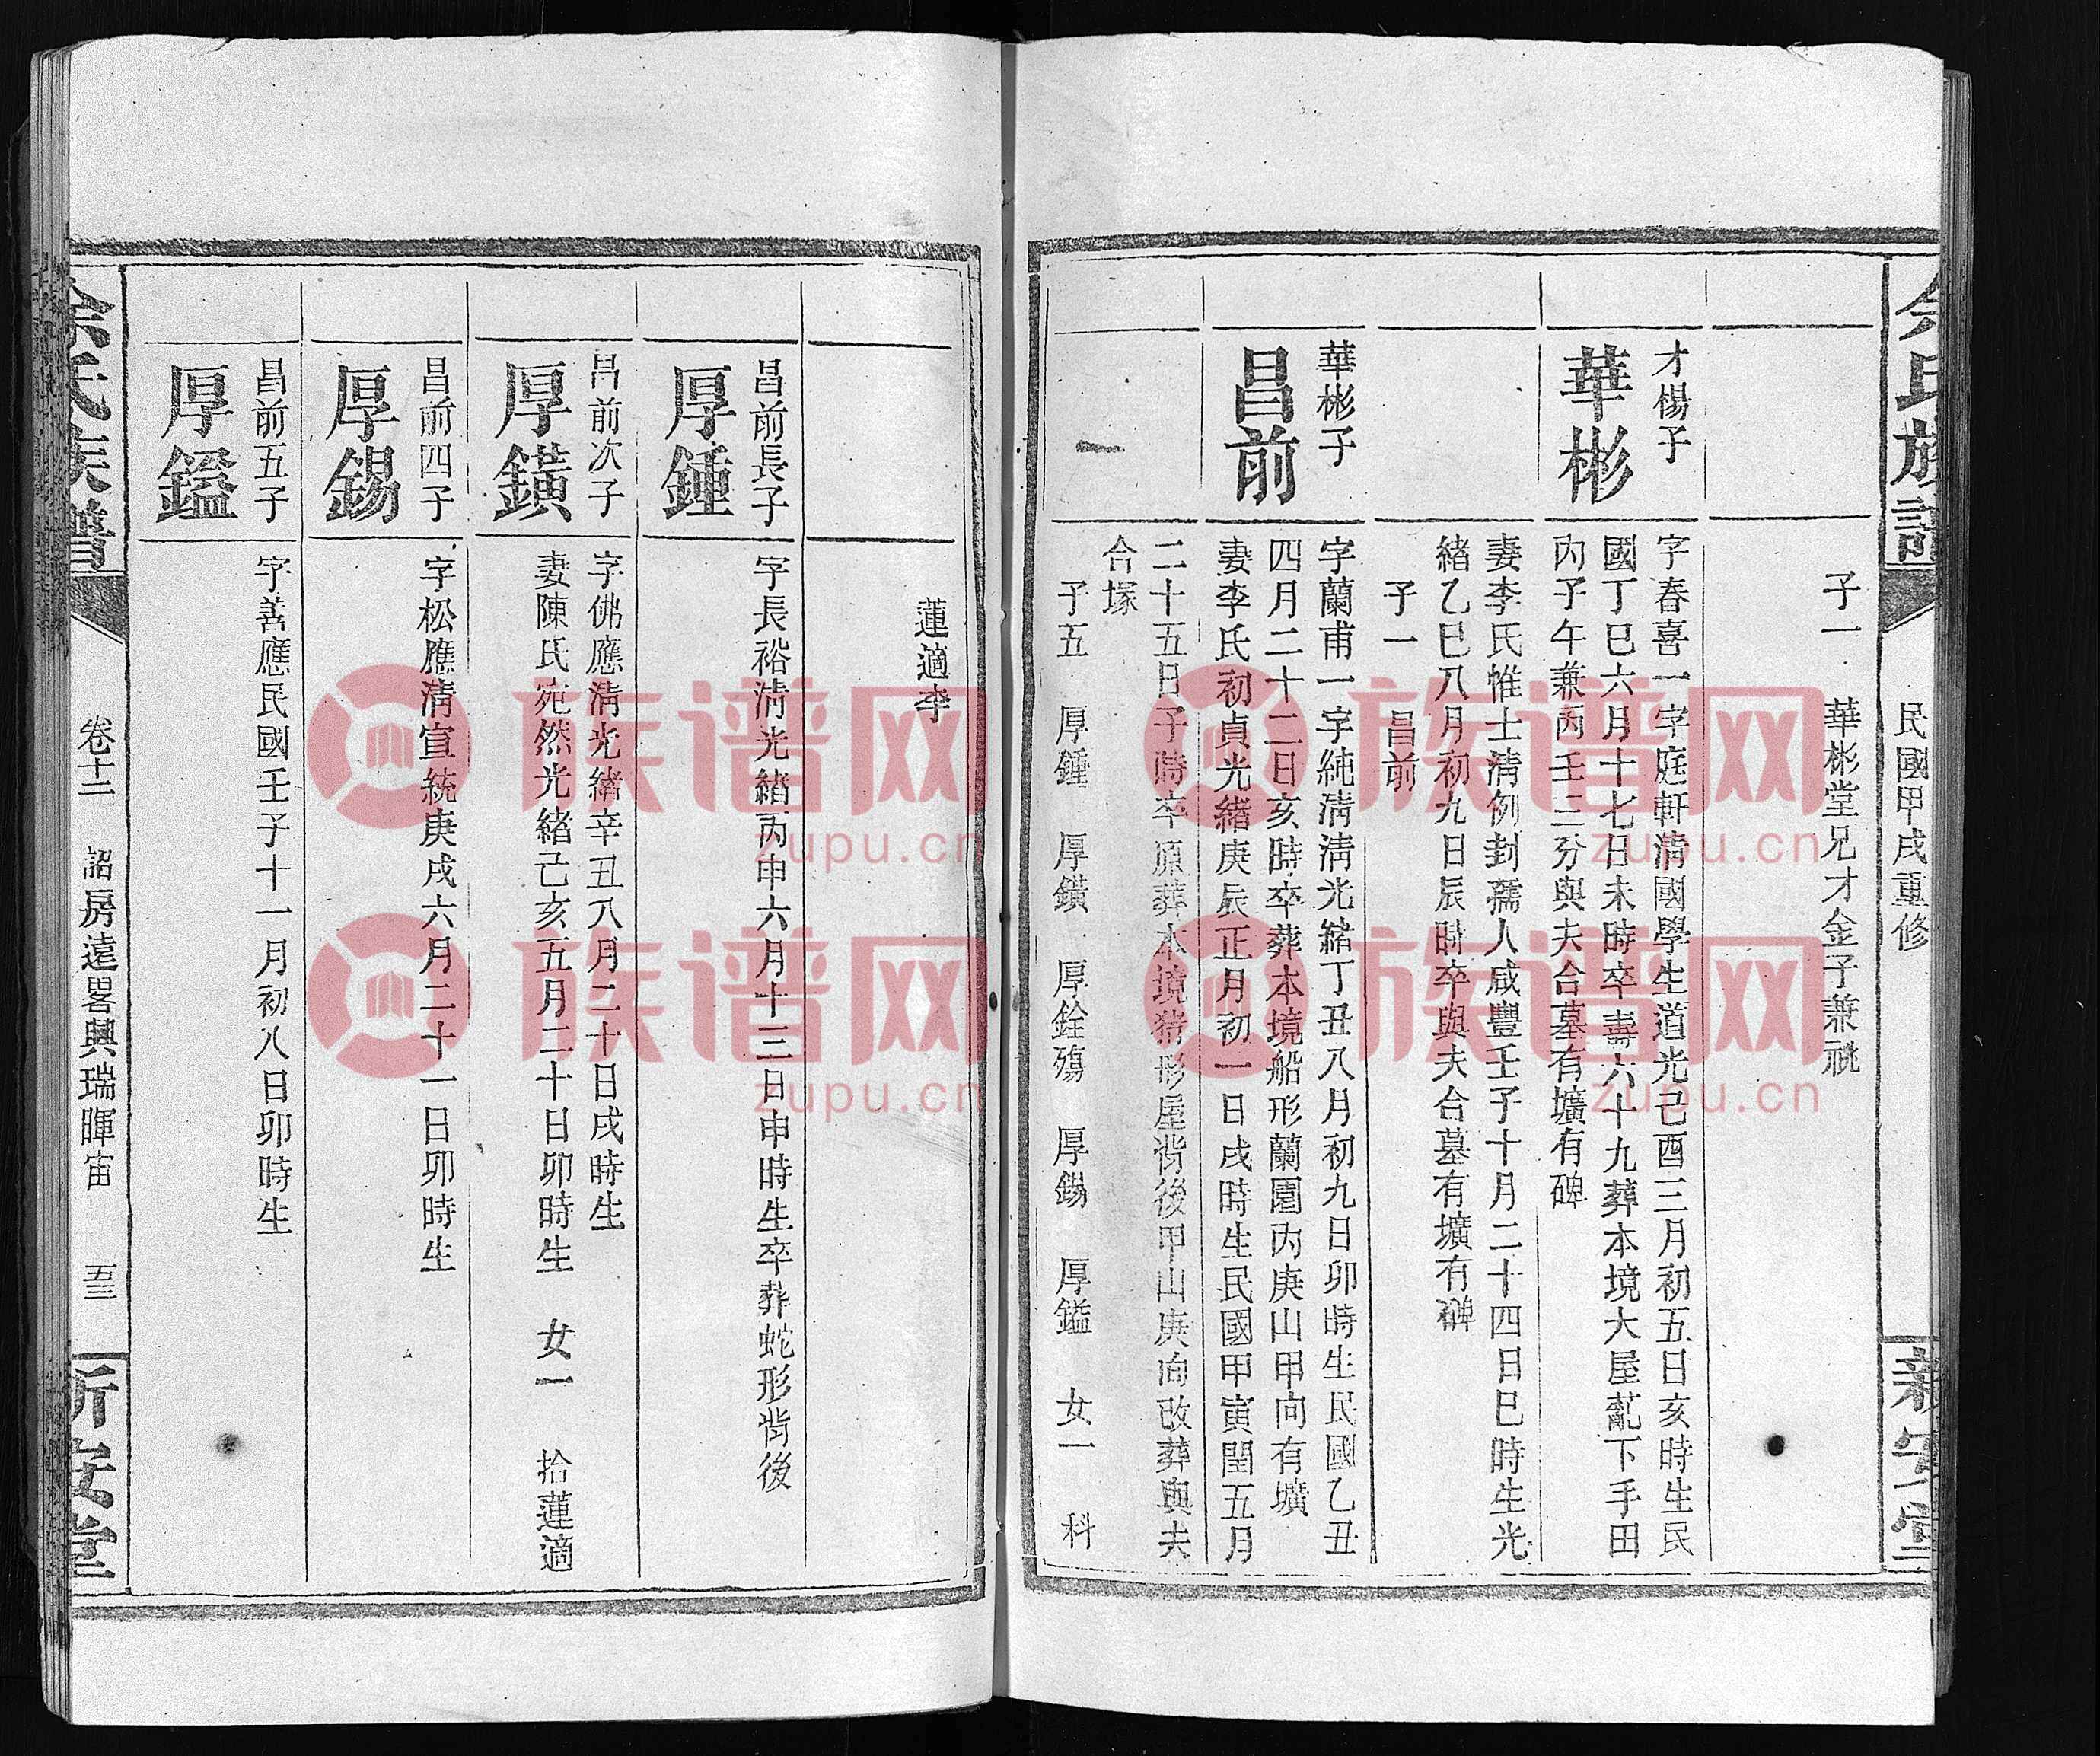 余氏族譜
民國甲戌重修
新安堂
子一 華彬堂兄才金子兼祧
才楊子
華彬
字春喜一字庭軒清國學生道光己酉三月初五日亥時生民
國丁巳六月十七日未時卒壽六十九葬本境大屋亂下手田
內子午兼丙壬三分與夫合墓有壙有碑
妻李氏惟士清例封孺人咸豐壬子十月二十四日巳時生光
緒乙巳八月初九日辰時卒與夫合墓有壙有碑
子一 昌前
華彬子
昌前
字蘭甫一字純淸淸光緒丁丑八月初九日卯時生民國乙丑
四月二十二日亥時卒葬本境船形蘭園內庚山甲向有壙
妻李氏初貞光緒庚辰正月初一日戌時生民國甲寅閏五月
二十五日子時卒原葬本境猪形屋背後甲山庚向改葬與夫
合塚
子五 厚鍾 厚鐄 厚銓殤 厚錫 厚鎰 女一 科
蓮適李
昌前長子
厚鍾
字長裕淸光緒丙申六月十三日申時生卒葬蛇形背後
昌前次子
厚鐄
字佛應淸光緒辛丑八月二十日戌時生
妻陳氏宛然光緒己亥五月二十日卯時生 女一 拾蓮適
昌前四子
厚錫
字松應淸宣統庚戌六月二十一日卯時生
昌前五子
厚鎰
字善應民國壬子十一月初八日卯時生
余氏族譜
卷十二 詔房遠畧興瑞暉宙 五三
新安堂
族谱网
zupu.cn
族谱网
zupu.cn
族谱网
zupu.cn
族谱网
zupu.cn